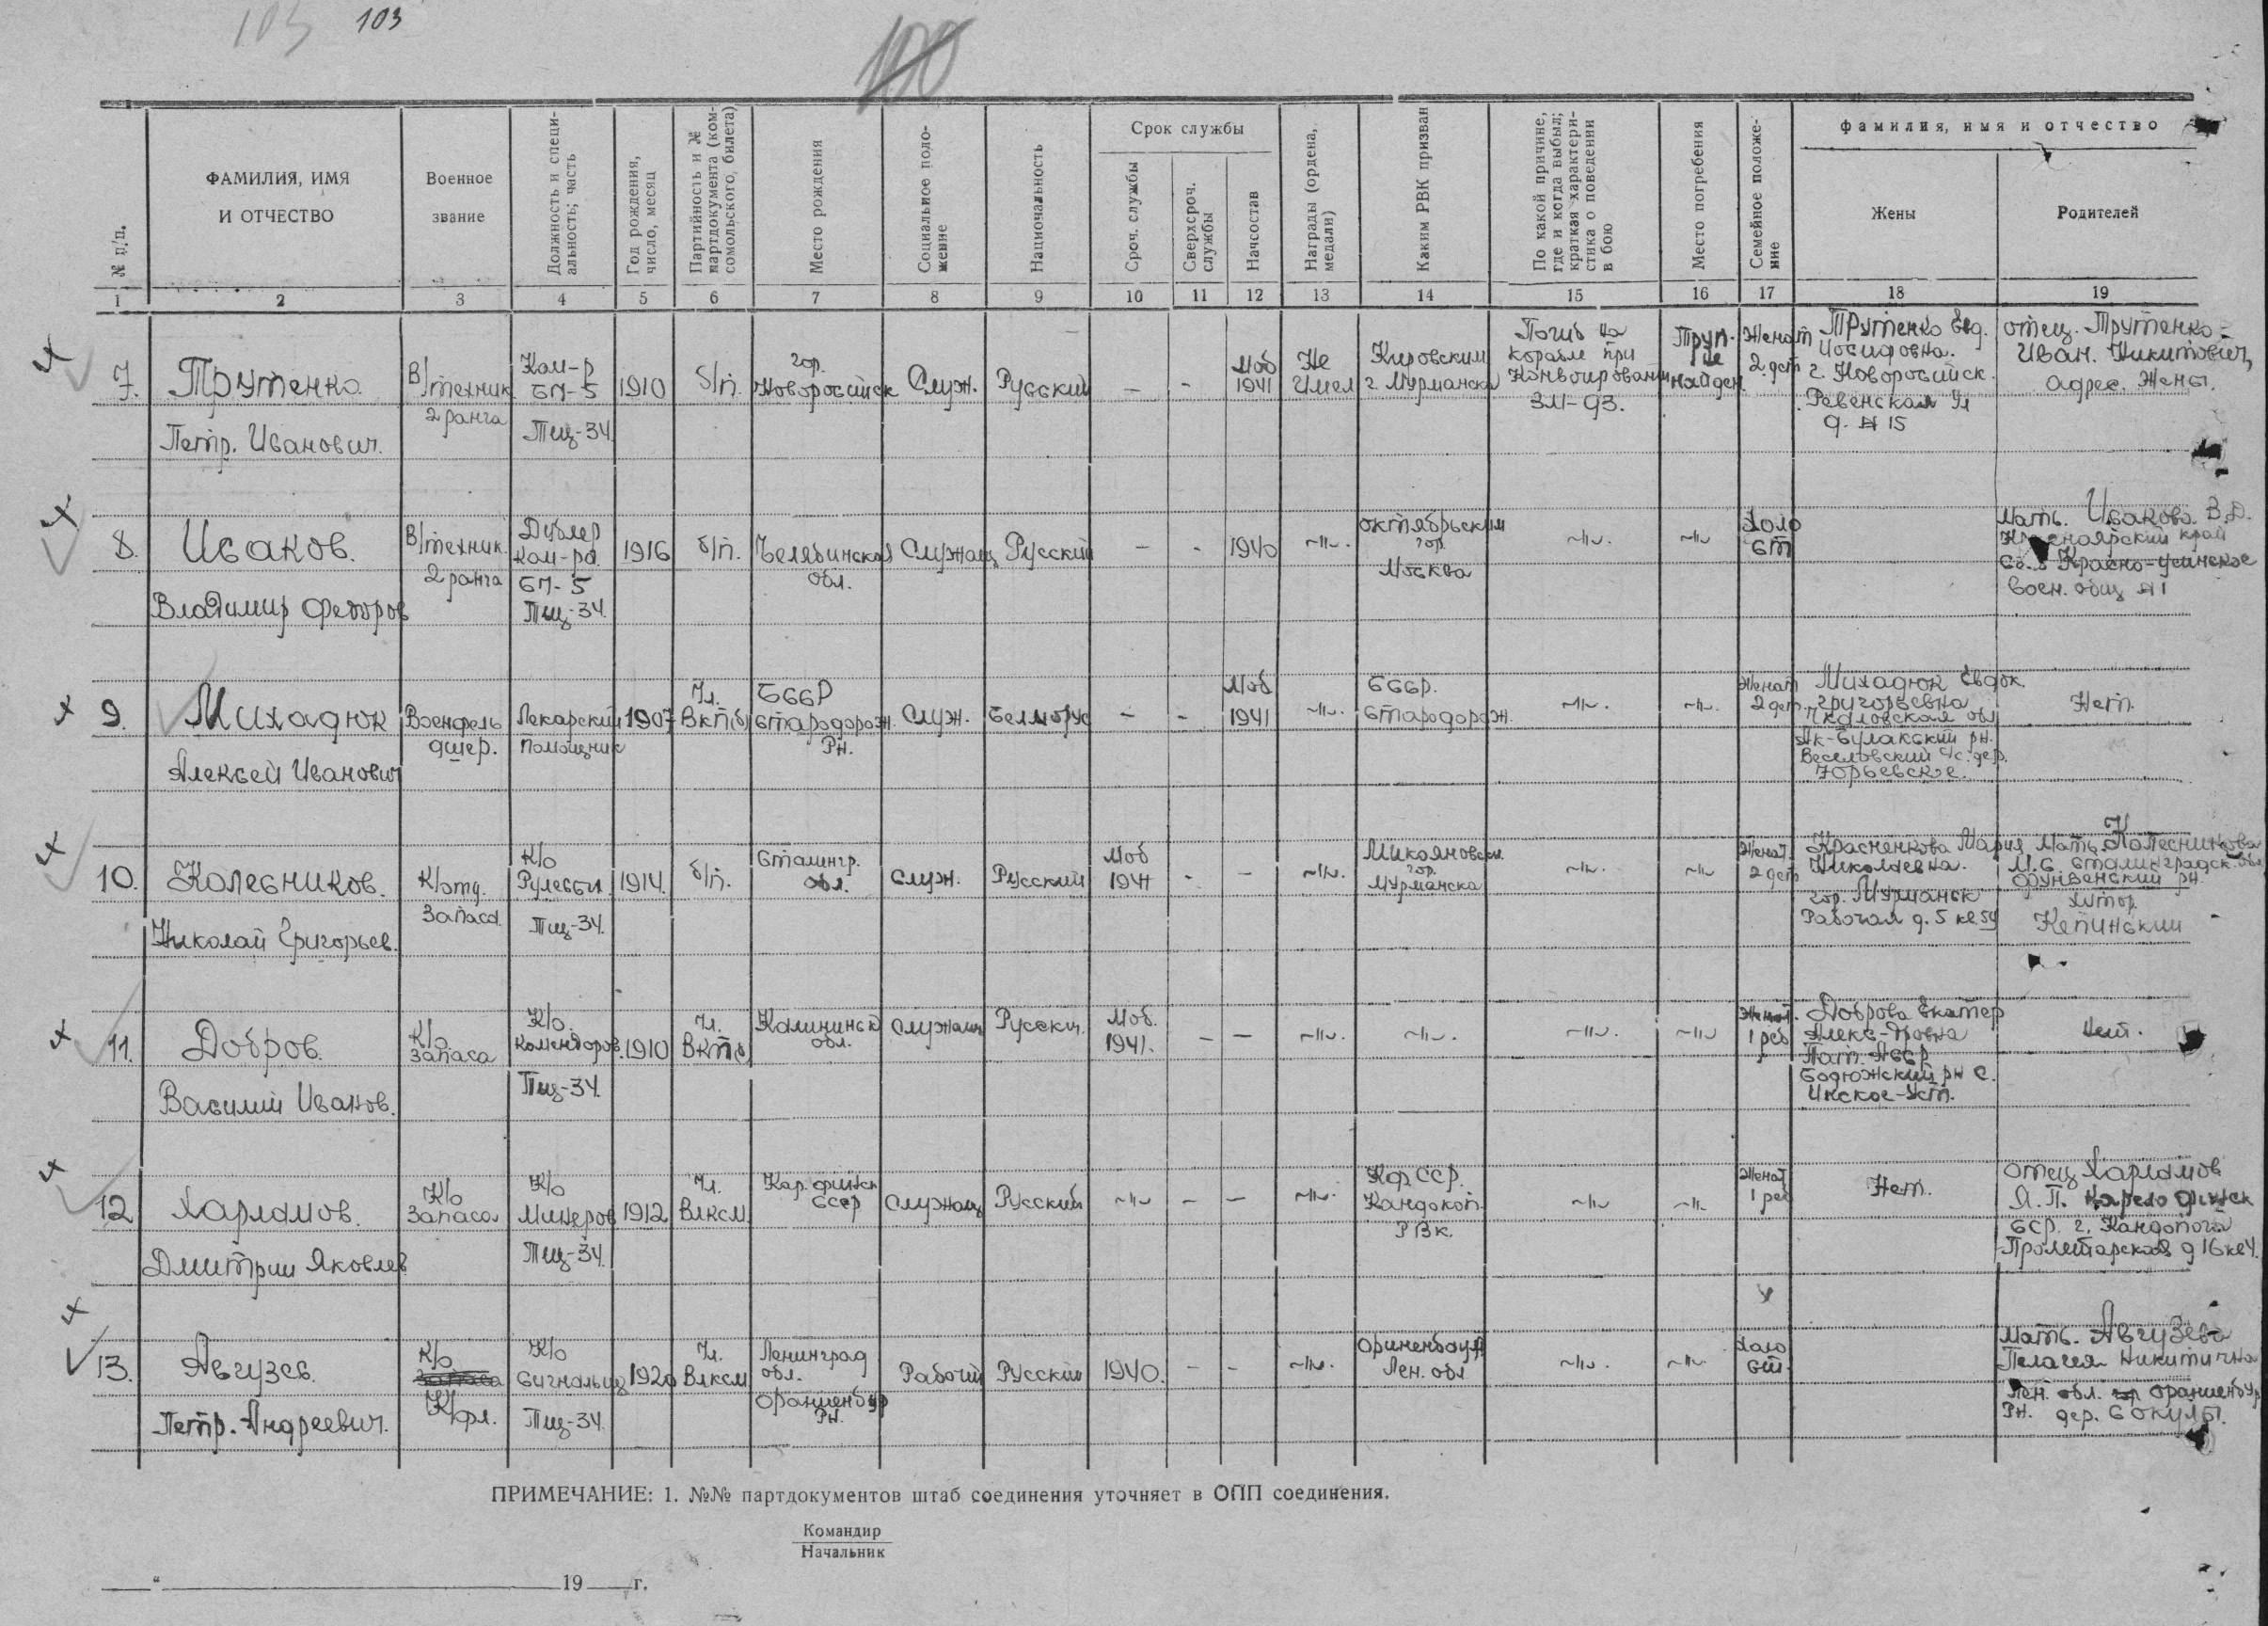 103 103
100
№ п/п.
ФАМИЛИЯ, ИМЯ
И ОТЧЕСТВО
Военное
звание
Должность и специ-
альность; часть
Год рождения,
число, месяц
Партийность и №
партдокумента (ком-
сомольского, билета)
Место рождения
Социальное поло-
жение
Национальность
Срок службы
Сроч. службы
Сверхсроч.
службы
Начсостав
Награды (ордена,
медали)
Каким РВК призван
По какой причине,
где и когда выбыл;
краткая характери-
стика о поведении
в бою
Место погребения
Семейное положе-
ние
фамилия, имя и отчество
Жены
Родителей
1 2 3 4 5 6 7 8 9 10 11 12 13 14 15 16 17 18 19
7.
Трутенко
Петр. Иванович.
В/техник
2 ранга
Ком-р
БП-5
Тщ-34
1910
б/п.
гор.
Новоросийск
Служ.
Русский
-
-
Моб
1941
Не
Имел
Кировским
г. Мурманска
Погиб на
корабле при
Конвоировании
ЭЛ-93.
Труп-
не
найден.
Женат
2 дет
Трутенко Евд.
Иосифовна.
г. Новоросийск.
Ревенская ул
д. № 15
отец. Трутенко
Иван. Никитович,
адрес. Жены.
8.
Исаков.
Владимир Федоров
В/техник.
2 ранга
Дублер
ком-ра
БП-5
Тщ-34
1916
б/п.
Челябинская
обл.
Служащ
Русский
-
-
1940
-"-
октябрьским
гор.
Москва
-"-
-"-
Холо
ст
Мать. Исакова В.Д.
Красноярский край
с. Красно-
воен. общ №1
9.
Михадюк
Алексей Иванович
Военфель
дшер.
Лекарский
помощник
1907
Чл.
ВКП(б)
БССР
Стародорож.
РН.
Служ.
Белморус
-
-
Моб
1941
-"-
БССР.
Стародорож.
-"-
-"-
Женат
2 дет.
Михадюк Евдок.
Григорьевна
Чкаловская обл
Ак-Булакский рн.
Веселовский с/с. дер.
Юрьевское.
Нет.
10.
Колесников.
Николай Григорьев.
К/отд.
запаса
К/о
Рулевы
Тщ-34.
1914.
б/п.
Сталингр.
обл.
служ.
Русский
Моб
1941
-
-
-"-
Микояновски
гор.
Мурманска
-"-
-"-
Женат.
2 дет
Красненкова Мария
Николаевна.
гор. Мурманск
Рабочая д. 5 кв 54
Мать Колесникова
М.С. Сталинградск. обл
Фрунзенский рн.
хутор.
Кепинский
11.
Добров.
Василий Иванов.
К/о
запаса
К/о.
комендоров.
Тщ-34.
1910
Чл.
ВКП(б
Калининск
обл.
Служащ
Русски.
Моб.
1941.
-
-
-"-
-"-
-"-
-"-
Женат.
1 реб
Доброва Екатер
Алекс-дровна
Тат. АССР
рн с.
Нет.
12
Харламов.
Дмитрии Яковлев
К/о
запаса
К/о
Минеров
Тщ-34.
1912
Чл.
ВЛКСМ
Кар. финск
ССср
Служащ
Русский
-"-
-
-
-"-
Кф ССР.
Кандокоп.
РВк.
-"-
-"-
Женат
1 реб
Нет.
отец Харламов
Я.П. Карело финск
ССР. г. Кандопога
Пролетарская д 16 кв 4.
13.
Авгузев.
Петр. Андреевич.
К/о
запаса
К/фл.
К/о
Сигнальщ
Тщ-34.
1920
Чл.
ВЛКСМ
Ленинград
обл.
Ораниенбур
РН.
Рабочий
Русский
1940.
-
-
-"-
Ориненбаум
Лен. обл
-"-
-"-
Холо
ст.
Мать. Авгузева
Пелагея Никитична
Лен. обл. ораниенбур
РН. дер. Сокулы.
ПРИМЕЧАНИЕ: 1. №№ партдокументов штаб соединения уточняет в ОПП соединения.
Командир
Начальник
"
19 г.